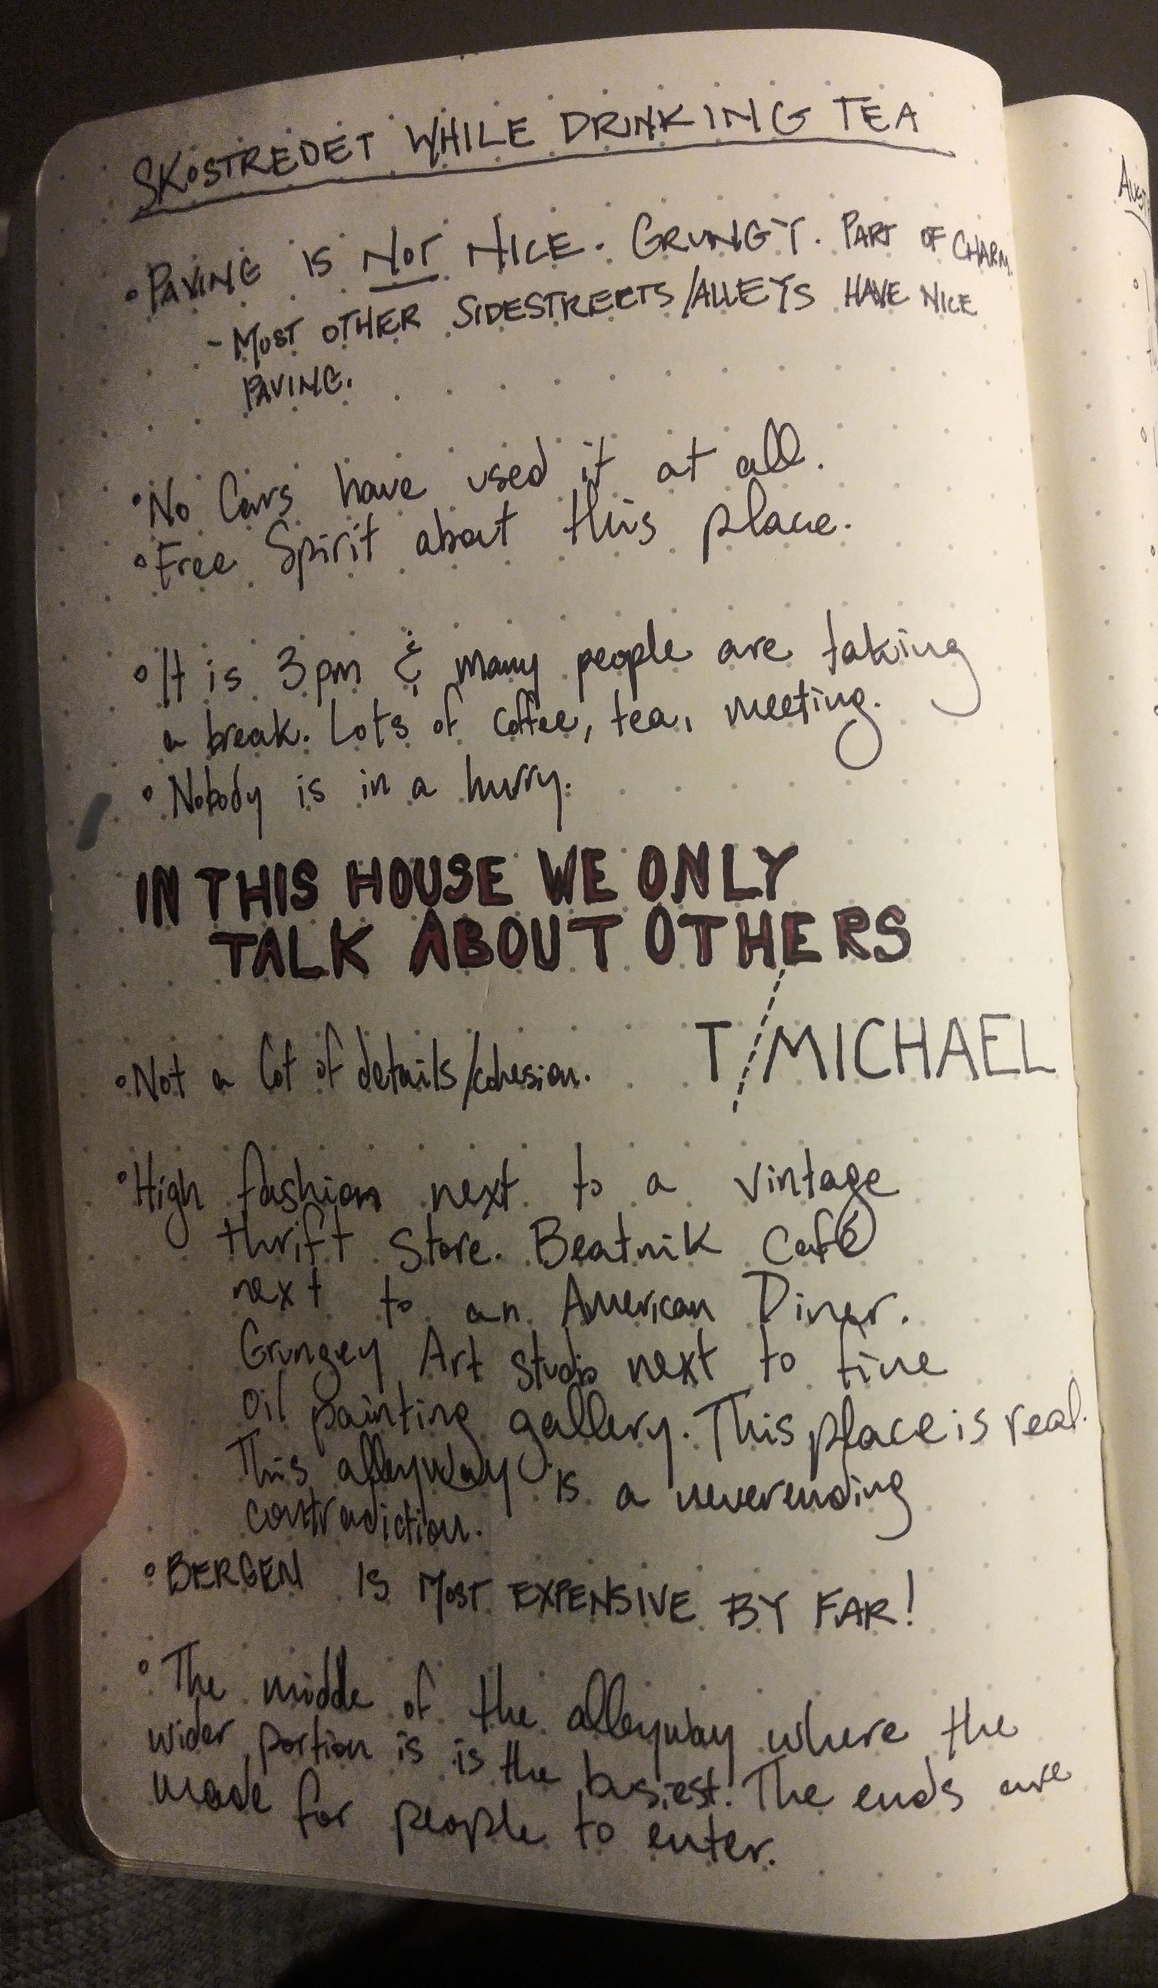 SKOSTREDET WHILE DRINKING TEA
• PAVING IS NOT NICE. GRUNGY. PART OF CHARM.
- MOST OTHER SIDESTREETS/ALLEYS HAVE NICE
PAVING.
• No Cars have used it at all.
• Free Spirit about this place.
• It is 3pm & many people are taking
a break. Lots of coffee, tea, meeting.
• Nobody is in a hurry.
IN THIS HOUSE WE ONLY
TALK ABOUT OTHERS
T/MICHAEL
• Not a lot of details/cohesion.
• High fashion next to a vintage
thrift store. Beatnik Café
next to an American Diner.
Grungey Art studio next to fine
oil painting gallery. This place is real.
This alleyway is a neverending
contradiction.
• BERGEN IS MOST EXPENSIVE BY FAR!
• The middle of the alleyway where the
wider portion is is the busiest. The ends are
made for people to enter.